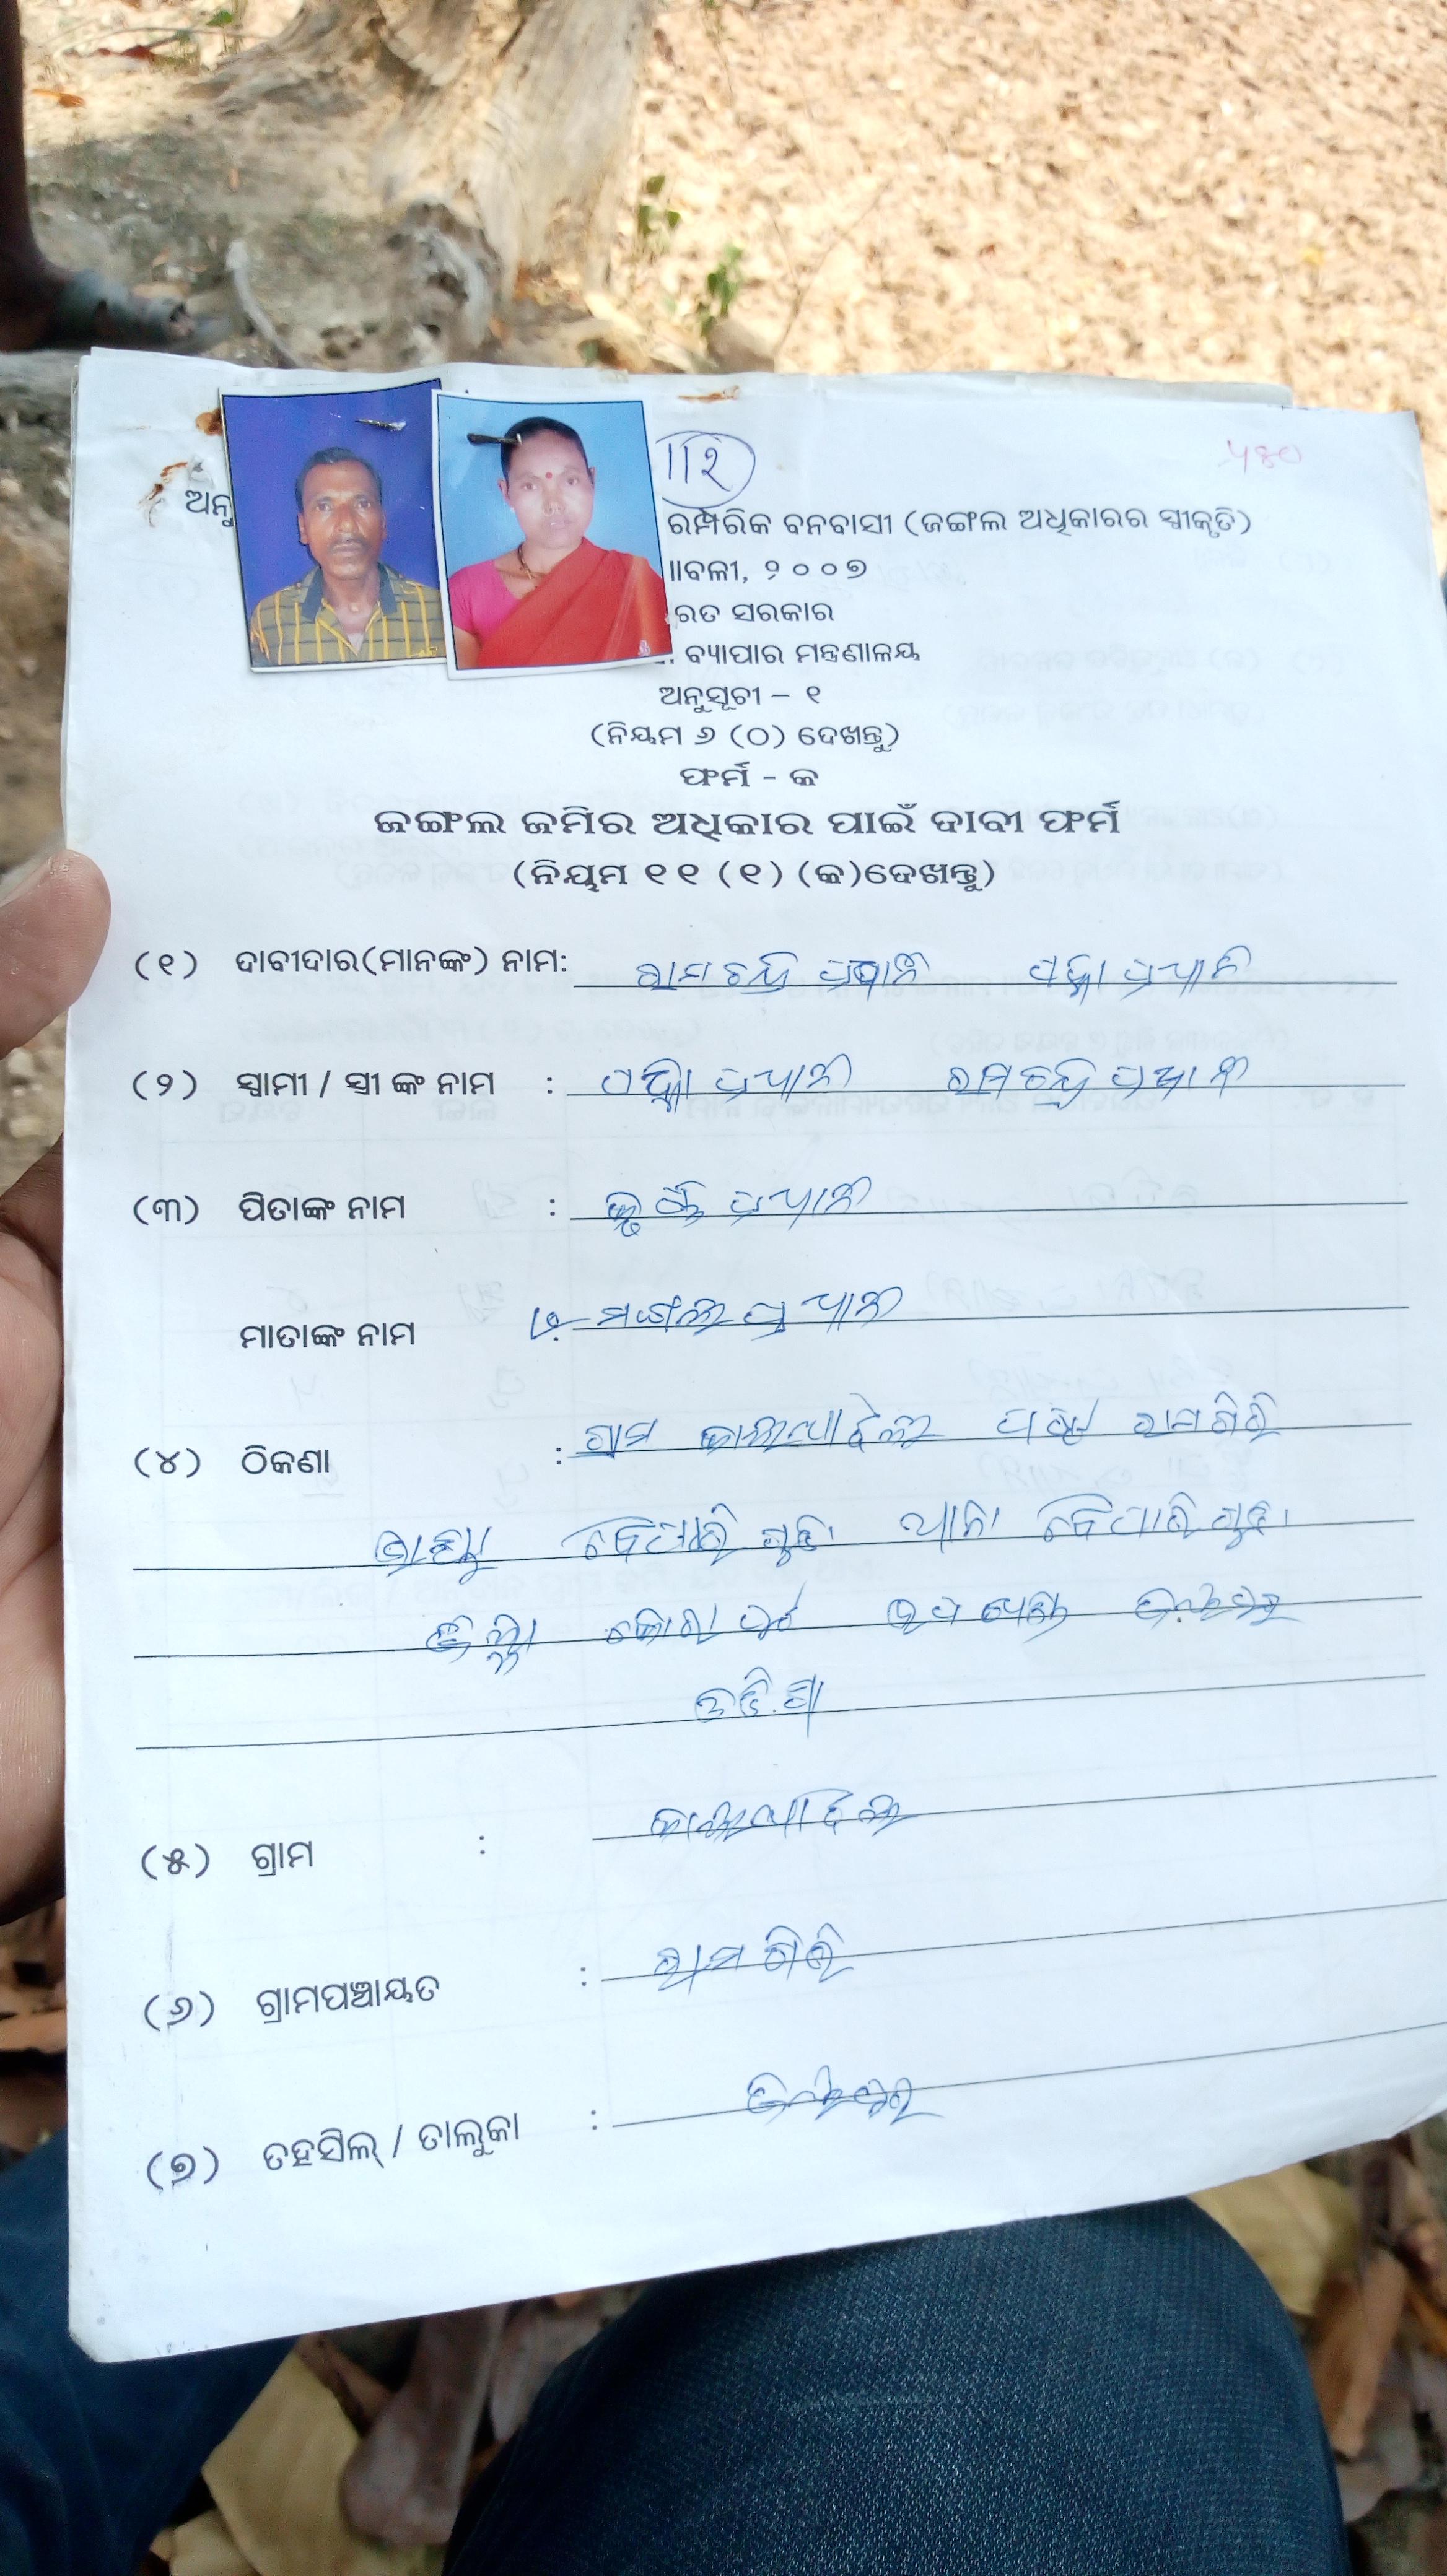 ୧୧୨
୫୫୦
ଅନୁ ରମ୍ପରିକ ବନବାସୀ (ଜଙ୍ଗଲ ଅଧିକାରର ସ୍ୱୀକୃତି)
ାବଳୀ, ୨୦୦୭
ରତ ସରକାର
ବ୍ୟାପାର ମନ୍ତ୍ରଣାଳୟ
ଅନୁସୂଚୀ – ୧
(ନିୟମ ୬ (୦) ଦେଖନ୍ତୁ)
ଫର୍ମ - କ
ଜଙ୍ଗଲ ଜମିର ଅଧିକାର ପାଇଁ ଦାବୀ ଫର୍ମ
(ନିୟମ ୧୧ (୧) (କ)ଦେଖନ୍ତୁ)
(୧) ଦାବୀଦାର(ମାନଙ୍କ) ନାମ: ରାମଚନ୍ଦ୍ର ପ୍ରଧାନୀ ପ୍ରଧାନି
(୨) ସ୍ୱାମୀ / ସ୍ତ୍ରୀ ଙ୍କ ନାମ : ପ୍ରଧାନୀ ରାମଚନ୍ଦ୍ର ପ୍ରଧାନୀ
(୩) ପିତାଙ୍କ ନାମ : ପ୍ରଧାନୀ
ମାତାଙ୍କ ନାମ : ପ୍ରଧାନୀ
(୪) ଠିକଣା : ଗ୍ରାମ ରାମଗିରି
ବୈପାରିଗୁଡା ଥାନା ବୈପାରିଗୁଡା
ଜିଲ୍ଲା କୋରାପୁଟ
ଓଡିଶା
(୫) ଗ୍ରାମ :
(୬) ଗ୍ରାମପଞ୍ଚାୟତ : ରାମଗିରି
(୭) ତହସିଲ୍ / ତାଲୁକା :